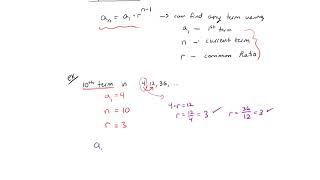 aₙ = a₁ · rⁿ⁻¹ → can find any term using
a₁ - 1ˢᵗ term
n - current term
r - common Ratio
ex 10ᵗʰ term in 4, 12, 36, ...
a₁ = 4
n = 10
r = 3
4·r = 12
r = 12/4 = 3 ✓ r = 36/12 = 3 ✓
a